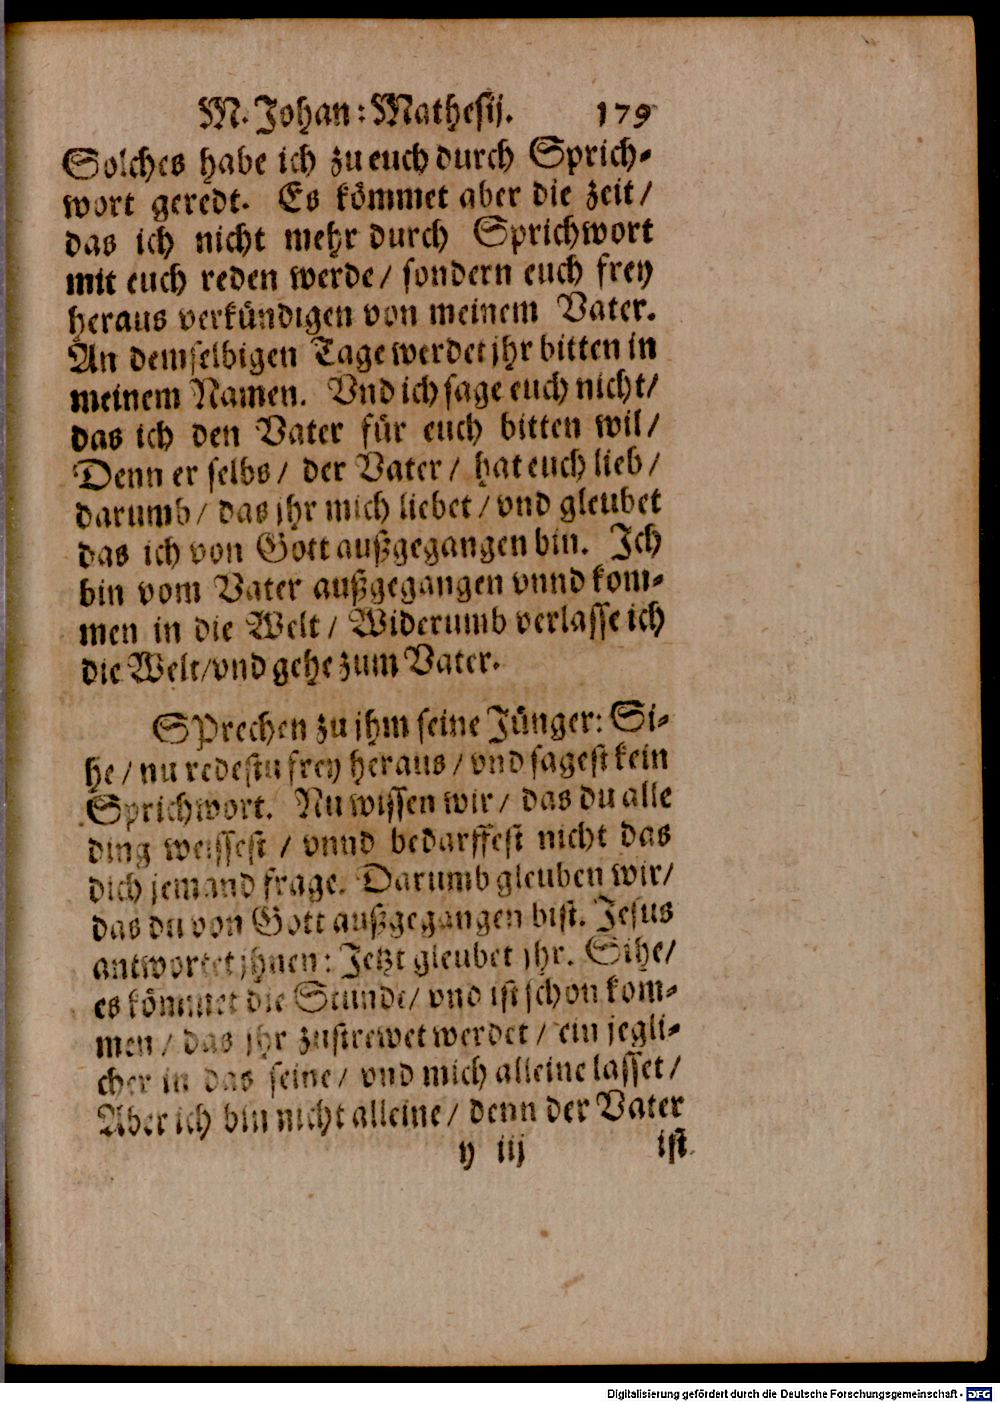 M. Johan: Mathesij. 179
Solches habe ich zu euch durch Sprich-
wort geredt. Es kömmet aber die zeit/
das ich nicht mehr durch Sprichwort
mit euch reden werde/ sondern euch frey
heraus verkündigen von meinem Vater.
An demselbigen Tage werdet jhr bitten in
meinem Namen. Vnd ich sage euch nicht/
das ich den Vater für euch bitten wil/
Denn er selbs/ der Vater/ hat euch lieb/
darumb/ das jhr mich liebet/ vnd gleubet
das ich von Gott außgegangen bin. Ich
bin vom Vater außgegangen vnnd kom-
men in die Welt/ Widerumb verlasse ich
die Welt/vnd gehe zum Vater.
SPrechen zu jhm seine Jünger: Si-
he/ nu redestu frey heraus/ vnd sagest kein
Sprichwort. Nu wissen wir/ das du alle
ding weissest/ vnnd bedarffest nicht das
dich jemand frage. Darumb gleuben wir/
das du von Gott außgegangen bist. Jesus
antwortet jhnen: Jetzt gleubet jhr. Sihe/
es kömmet die Stunde/ vnd ist schon kom-
men/ das jhr zustrewet werdet/ ein jegli-
cher in das seine/ vnd mich alleine lasset/
Aber ich bin nicht alleine/ denn der Vater
y iij ist
Digitalisierung gefördert durch die Deutsche Forschungsgemeinschaft - DFG